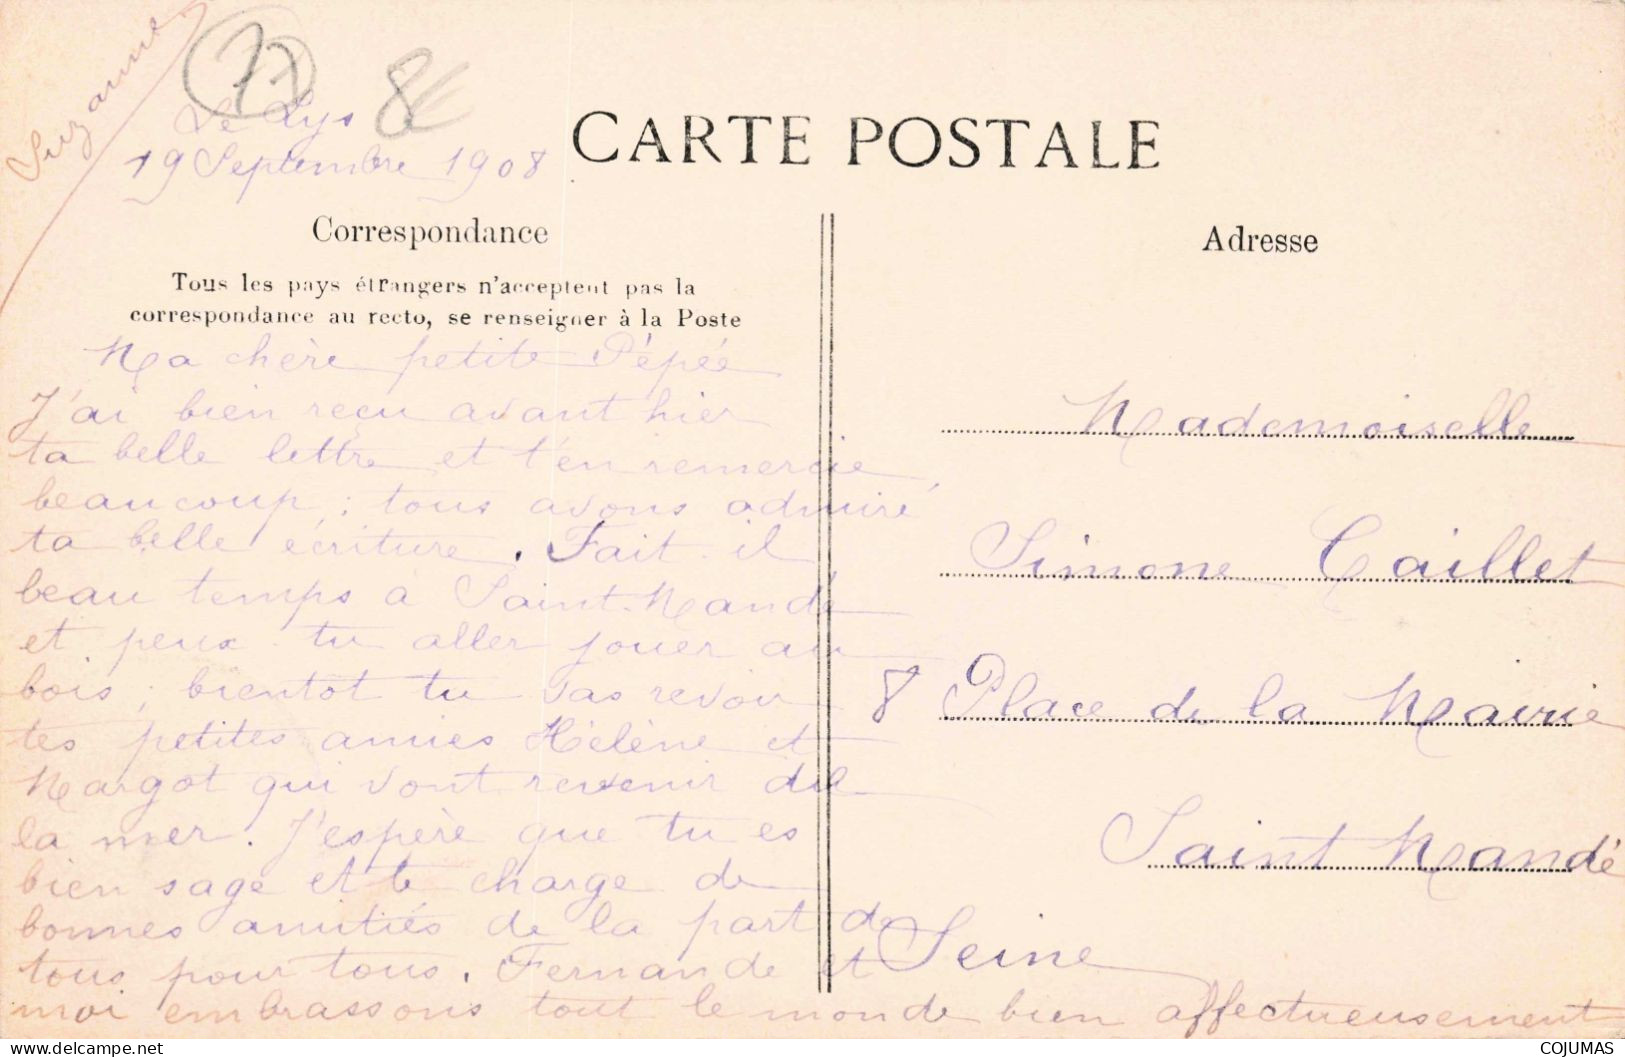 Suzanne
77
8€
Le Lys
19 Septembre 1908
CARTE POSTALE
Correspondance
Tous les pays étrangers n'acceptent pas la
correspondance au recto, se renseigner à la Poste
Ma chère petite Pépée
J'ai bien reçu avant hier
ta belle lettre et t'en remercie
beaucoup ; tous avons admiré
ta belle écriture. Fait-il
beau temps à Saint-Mandé
et peux tu aller jouer au
bois ; bientôt tu vas revoir
tes petites amies Hélène et
Margot qui vont revenir de
la mer. J'espère que tu es
bien sage et te charge de
bonnes amitiés de la part de
tous pour tous. Fernande et
moi embrassons tout le monde bien affectueusement
Adresse
Mademoiselle
Simone Caillet
8 Place de la Mairie
Saint Mandé
Seine
COJUMAS